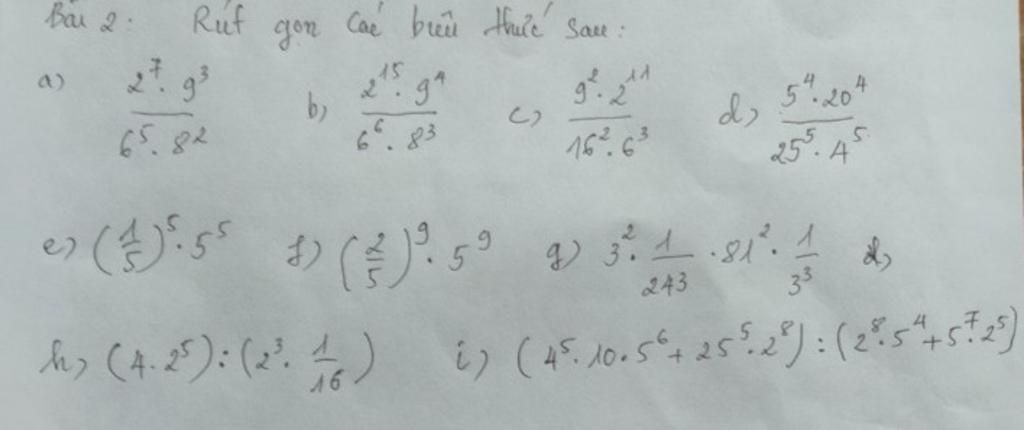 Bài 2: Rút gọn các biểu thức sau:
a) \frac{2^7 . 9^3}{6^5 . 8^2} b) \frac{2^{15} . 9^4}{6^6 . 8^3} c) \frac{9^2 . 2^{11}}{16^2 . 6^3} d) \frac{5^4 . 20^4}{25^5 . 4^5}
e) (\frac{1}{5})^5 . 5^5 f) (\frac{2}{5})^9 . 5^9 g) 3^2 . \frac{1}{243} . 81^2 . \frac{1}{3^3}
h) (4 . 2^5) : (2^3 . \frac{1}{16}) i) (4^5 . 10 . 5^6 + 25^5 . 2^8) : (2^8 . 5^4 + 5^7 . 2^5)